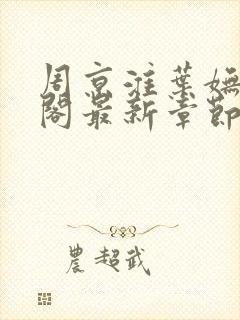 周京淮葉嫵
閣最新章節
農超武